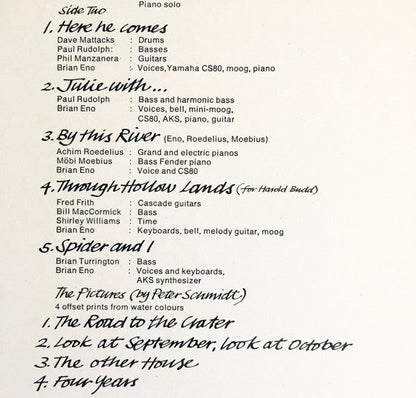 Piano solo
Side Two
1. Here he comes
Dave Mattacks : Drums
Paul Rudolph: : Basses
Phil Manzanera : Guitars
Brian Eno : Voices,Yamaha CS80, moog, piano
2. Julie with...
Paul Rudolph : Bass and harmonic bass
Brian Eno : Voices, bell, mini-moog,
CS80, AKS, piano, guitar
3. By this River (Eno, Roedelius, Moebius)
Achim Roedelius : Grand and electric pianos
Möbi Moebius : Bass Fender piano
Brian Eno : Voice and CS80
4. Through Hollow Lands (for Harold Budd)
Fred Frith : Cascade guitars
Bill MacCormick : Bass
Shirley Williams : Time
Brian Eno : Keyboards, bell, melody guitar, moog
5. Spider and I
Brian Turrington : Bass
Brian Eno : Voices and keyboards,
AKS synthesizer
The Pictures (by Peter Schmidt)
4 offset prints from water colours
1. The Road to the Crater
2. Look at September, look at October
3. The other House
4. Four Years